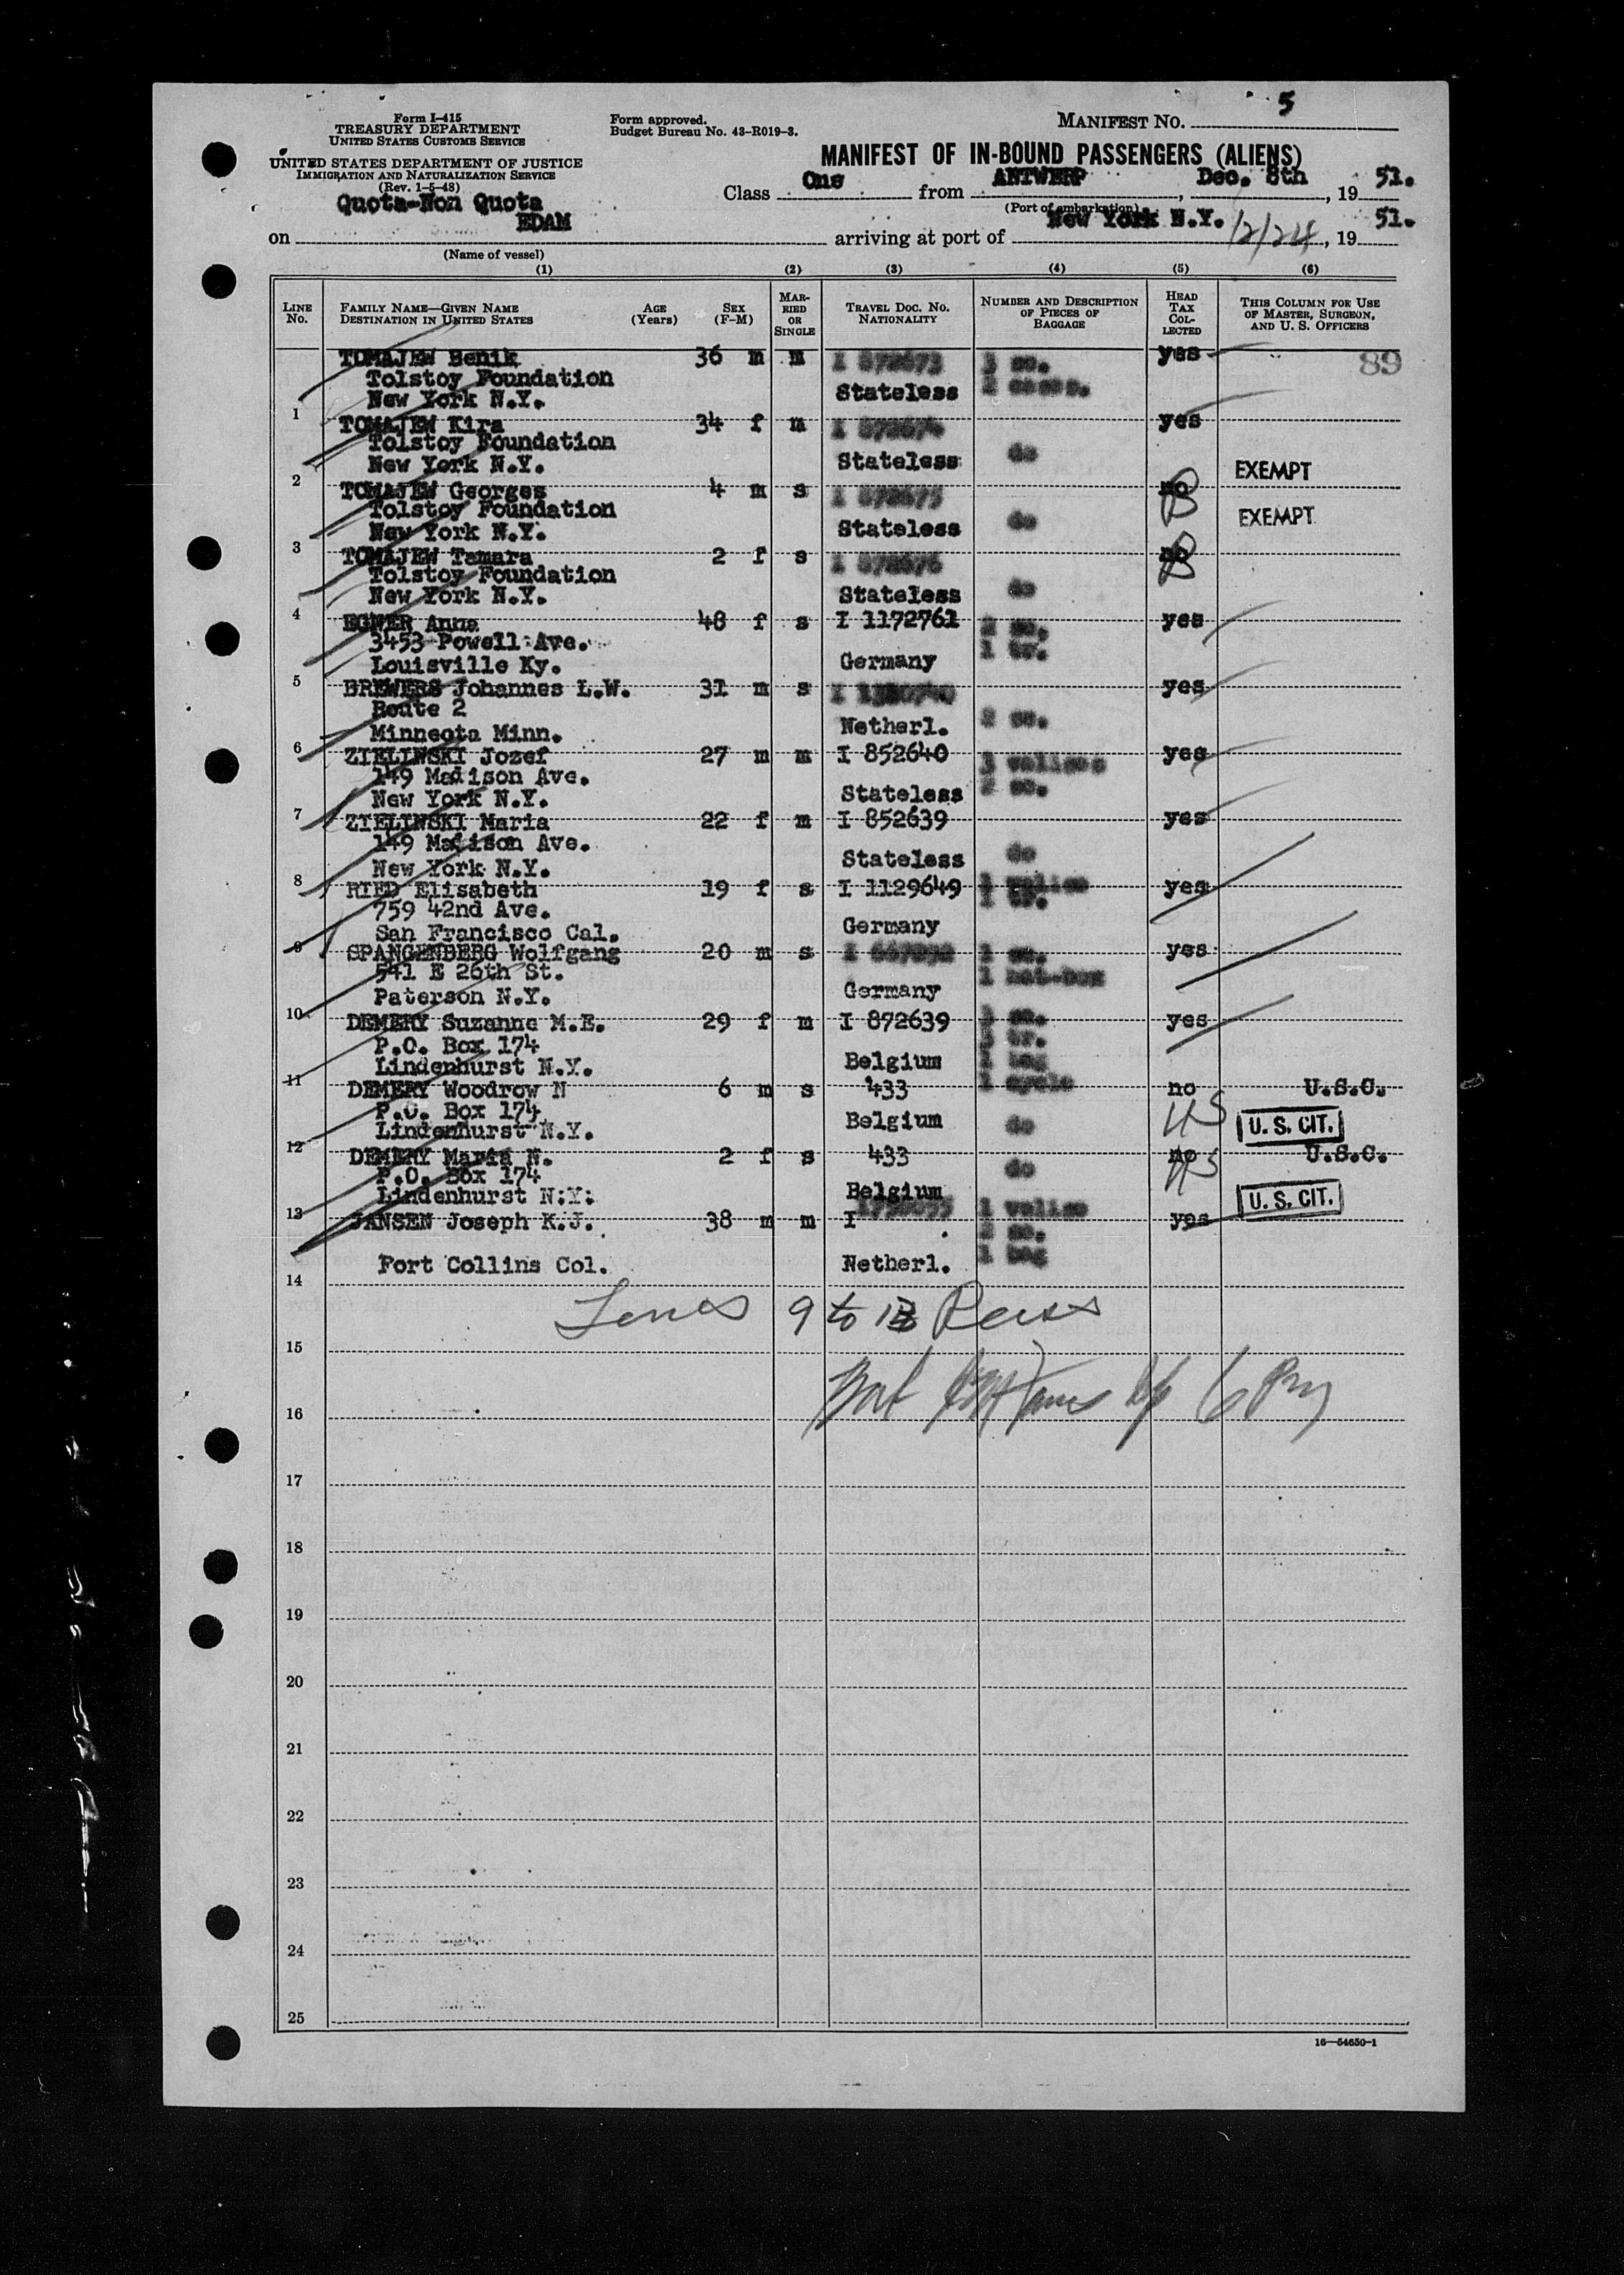 5
Form I-415
TREASURY DEPARTMENT
UNITED STATES CUSTOMS SERVICE
Form approved.
Budget Bureau No. 43-R019-3.
MANIFEST NO.
UNITED STATES DEPARTMENT OF JUSTICE
IMMIGRATION AND NATURALIZATION SERVICE
(Rev. 1-5-48)
MANIFEST OF IN-BOUND PASSENGERS (ALIENS)
Quota-Non Quota
Class One from ANTWERP, Dec. 8th, 19 51.
(Port of embarkation)
on EDAM arriving at port of New York N.Y. 12/24, 19 51.
(Name of vessel)
(1) (2) (3) (4) (5) (6)
LINE No.
FAMILY NAME—GIVEN NAME
DESTINATION IN UNITED STATES
AGE (Years)
SEX (F-M)
MARRIED OR SINGLE
TRAVEL DOC. NO.
NATIONALITY
NUMBER AND DESCRIPTION OF PIECES OF BAGGAGE
HEAD TAX COLLECTED
THIS COLUMN FOR USE OF MASTER, SURGEON, AND U. S. OFFICERS
TOMAJEW Benik 36 m m I 872673 3 sc. yes 89
Tolstoy Foundation 2 cases.
New York N.Y. Stateless
1
TOMAJEW Kira 34 f m I 872674 yes
Tolstoy Foundation
New York N.Y. Stateless do
2 EXEMPT
TOMAJEW Georges 4 m s I 872675 no
Tolstoy Foundation
New York N.Y. Stateless do EXEMPT
3
TOMAJEW Tamara 2 f s I 872676 no
Tolstoy Foundation
New York N.Y. Stateless do
4
EGNER Anna 48 f s I 1172761 2 sc. yes
3453 Powell Ave. 1 tr.
Louisville Ky. Germany
5
BREWERS Johannes L.W. 31 m s I yes
Route 2
Minneota Minn. Netherl. 2 sc.
6
ZIELINSKI Jozef 27 m m I 852640 3 valises yes
149 Madison Ave. 2 sc.
New York N.Y. Stateless
7
ZIELINSKI Maria 22 f m I 852639 yes
149 Madison Ave.
New York N.Y. Stateless do
8
RIED Elisabeth 19 f s I 1129649 1 valise yes
759 42nd Ave. 1 tr.
San Francisco Cal. Germany
9
SPANGENBERG Wolfgang 20 m s I 1 sc. yes
541 E 26th St. 1 hat-box
Paterson N.Y. Germany
10
DEMERY Suzanne M.E. 29 f m I 872639 3 sc. yes
P.O. Box 174 3 tr.
Lindenhurst N.Y. Belgium 1 bag
11 1 cycle
DEMERY Woodrow N 6 m s 433 no U.S.C.
P.O. Box 174 U. S. CIT.
Lindenhurst N.Y. Belgium do
12
DEMERY Maria N. 2 f s 433 no U.S.C.
P.O. Box 174 do
Lindenhurst N.Y. Belgium U. S. CIT.
13
JANSEN Joseph K.J. 38 m m I 1 valise yes
2 sc.
Fort Collins Col. Netherl. 1 bag
14
Lines 9 to 13
15
16
17
18
19
20
21
22
23
24
25
16—54650-1